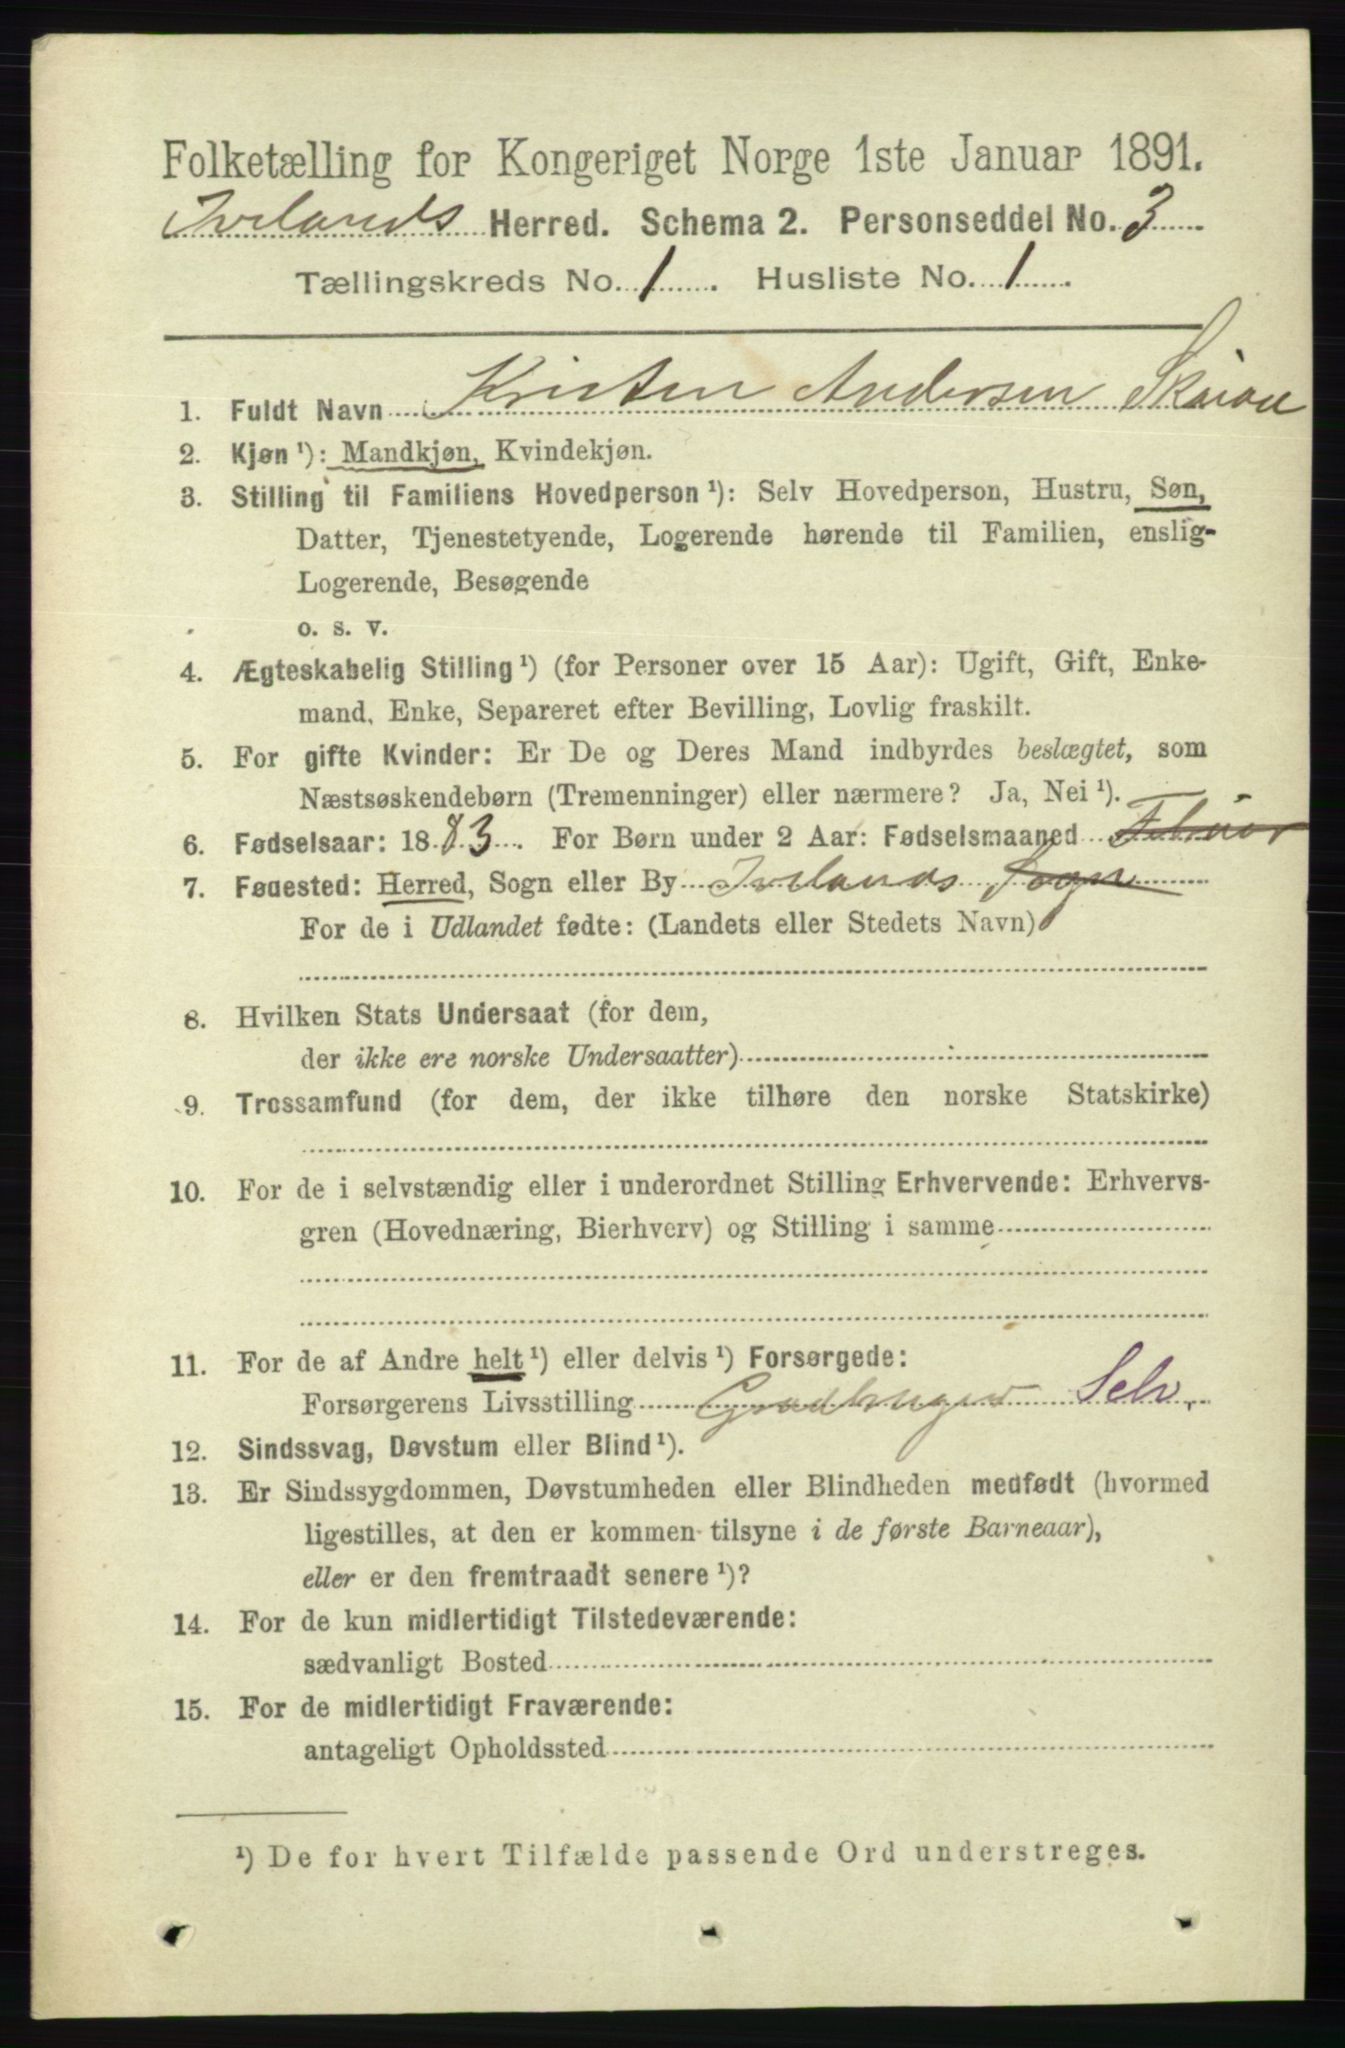 Folketælling for Kongeriget Norge 1ste Januar 1891.
Ivelands Herred. Schema 2. Personseddel No. 3
Tællingskreds No. 1. Husliste No. 1.
1. Fuldt Navn Kristen Andersen
2. Kjøn ¹): Mandkjøn, Kvindekjøn.
3. Stilling til Familiens Hovedperson ¹): Selv Hovedperson, Hustru, Søn,
Datter, Tjenestetyende, Logerende hørende til Familien, enslig-
Logerende, Besøgende
o. s. v.
4. Ægteskabelig Stilling ¹) (for Personer over 15 Aar): Ugift, Gift, Enke-
mand, Enke, Separeret efter Bevilling, Lovlig fraskilt.
5. For gifte Kvinder: Er De og Deres Mand indbyrdes beslægtet, som
Næstsøskendebørn (Tremenninger) eller nærmere? Ja, Nei ¹).
6. Fødselsaar: 1883. For Børn under 2 Aar: Fødselsmaaned Februar
7. Fødested: Herred, Sogn eller By Ivelands Sogn
For de i Udlandet fødte: (Landets eller Stedets Navn)
8. Hvilken Stats Undersaat (for dem,
der ikke ere norske Undersaatter)
9. Trossamfund (for dem, der ikke tilhøre den norske Statskirke)
10. For de i selvstændig eller i underordnet Stilling Erhvervende: Erhvervs-
gren (Hovednæring, Bierhverv) og Stilling i samme
11. For de af Andre helt ¹) eller delvis ¹) Forsørgede:
Forsørgerens Livsstilling Gaardbruger Selv.
12. Sindssvag, Døvstum eller Blind ¹).
13. Er Sindssygdommen, Døvstumheden eller Blindheden medfødt (hvormed
ligestilles, at den er kommen tilsyne i de første Barneaar),
eller er den fremtraadt senere ¹)?
14. For de kun midlertidigt Tilstedeværende:
sædvanligt Bosted
15. For de midlertidigt Fraværende:
antageligt Opholdssted
¹) De for hvert Tilfælde passende Ord understreges.